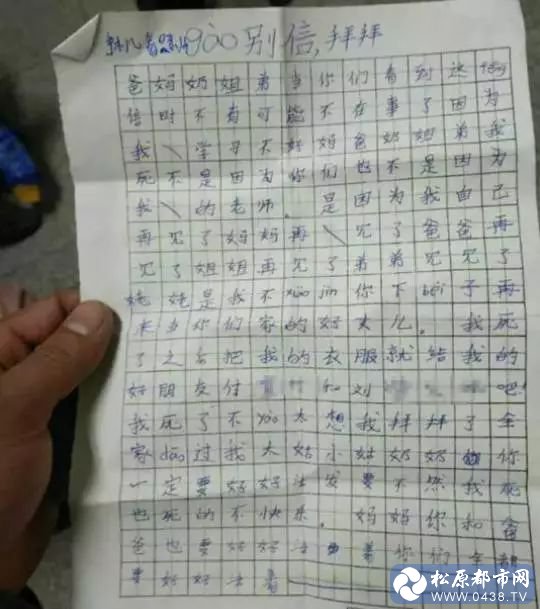 gào别信,拜拜
爸妈奶姐弟当你们看到这
信时不有可能不在事了因为
我 学习不好妈爸奶姐弟我
死不是因为你们也不是因为
我 的老师。是因为我自己
再见了妈妈再 见了爸爸再
见了姐姐再见了弟弟见见了
姥姥是我不xiào jìn你下bèi子再
来当你们家的好女儿。我死
了之后把我的衣服就给我的
好朋友付 和刘 吧!
我死了不yào太想我拜拜了全
家dāo过我大姑小姑奶奶 你
一定要好好活 要不然我死
也死的不快乐。妈妈你和爸
爸也要好好活 着你们全
要好好活着
松原都市网
www.0438.TV